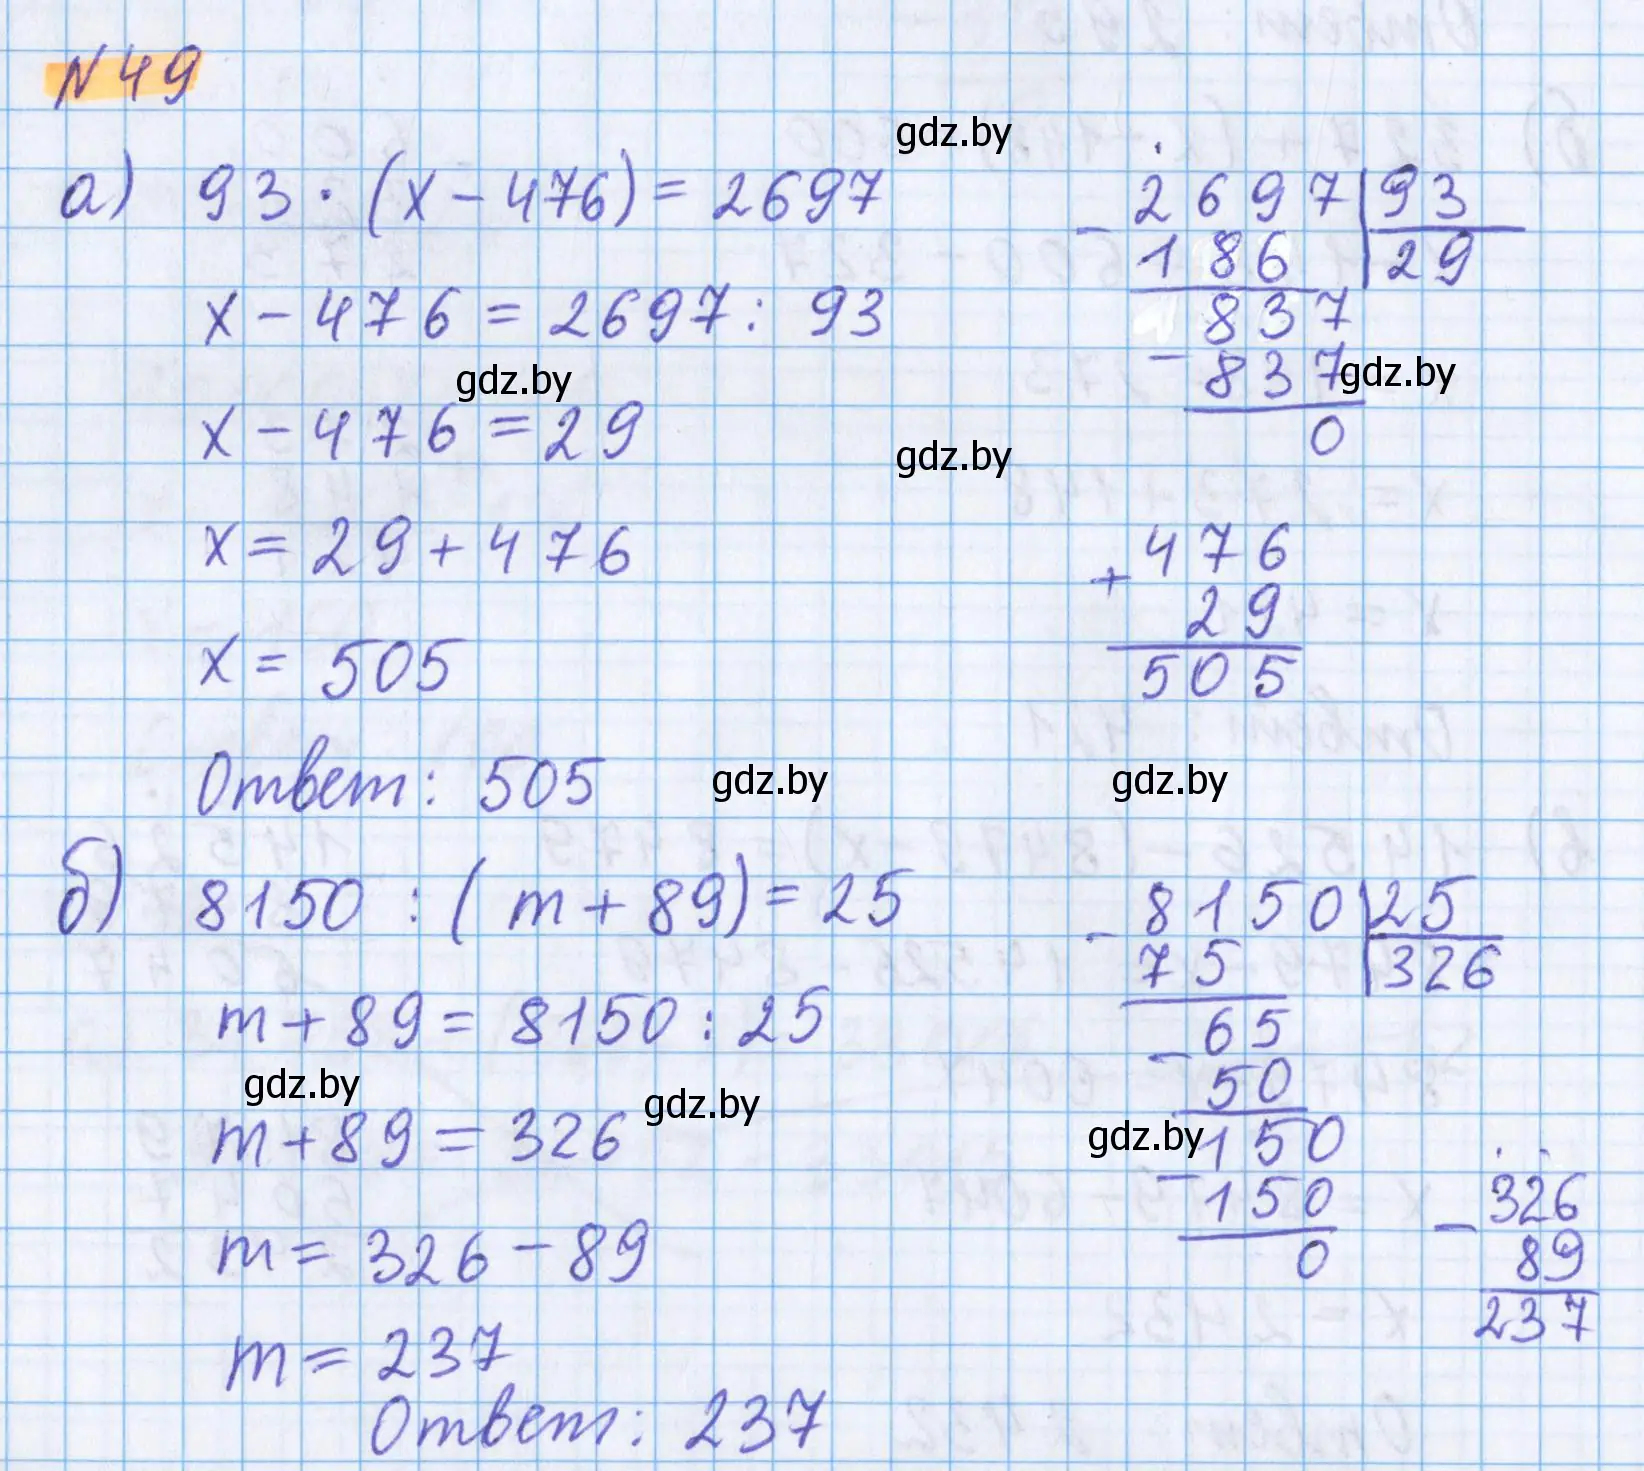 N49
gdz.by
а) 93 · (x − 476) = 2697
x − 476 = 2697 : 93
gdz.by
x − 476 = 29
gdz.by
x = 29 + 476
x = 505
Ответ: 505
gdz.by
− 2697 | 93
186 | 29
837
− 837
gdz.by
0
476
+ 29
505
gdz.by
б) 8150 : (m + 89) = 25
m + 89 = 8150 : 25
gdz.by
m + 89 = 326
gdz.by
m = 326 − 89
m = 237
Ответ: 237
− 8150 | 25
75 | 326
65
− 50
gdz.by
150
− 150
0
326
− 89
237